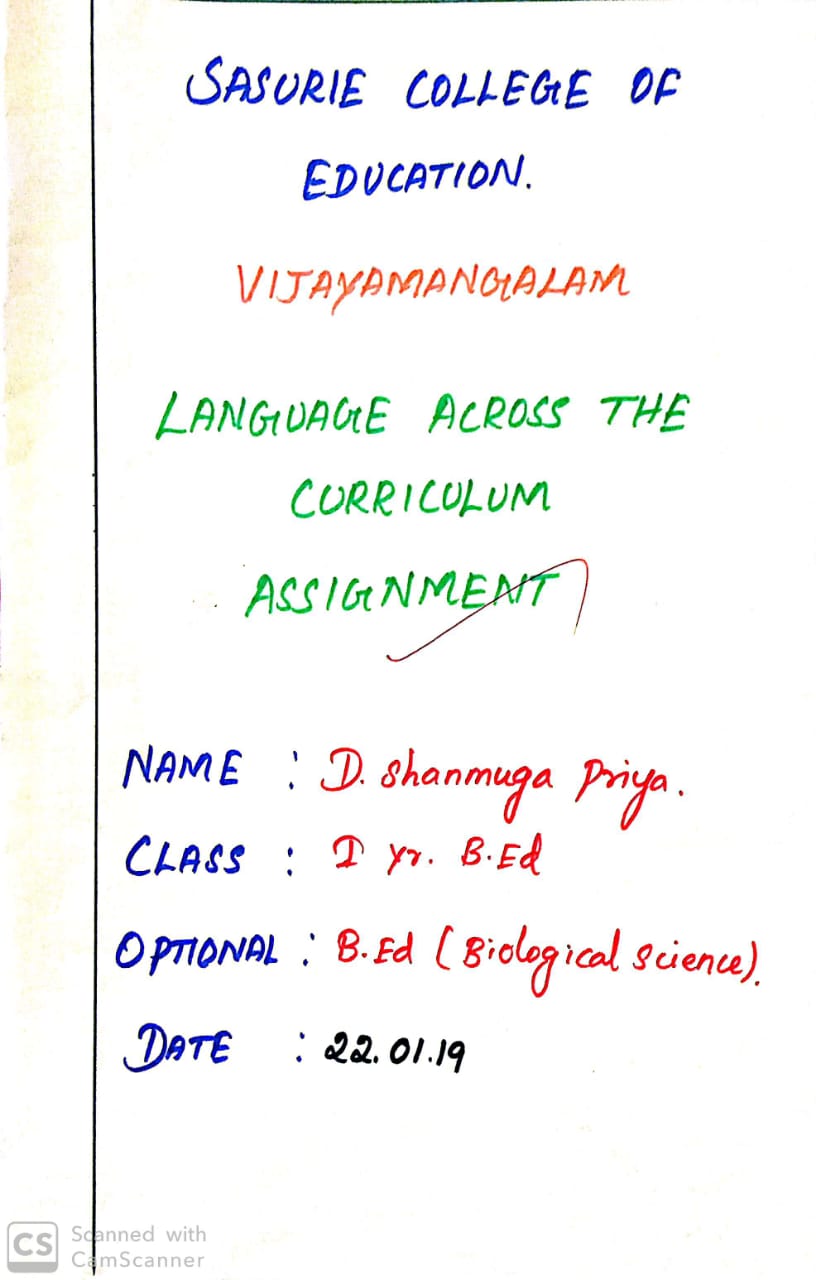 SASURIE COLLEGE OF
EDUCATION.
VIJAYAMANGALAM
LANGUAGE ACROSS THE
CURRICULUM
ASSIGNMENT
NAME : D. Shanmuga Priya.
CLASS : I yr. B.Ed
OPTIONAL : B.Ed (Biological Science).
DATE : 22.01.19
CS Scanned with
CamScanner